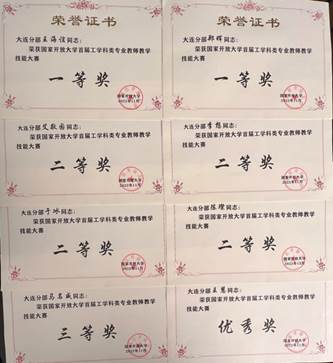 荣誉证书
大连分部王海漫同志:
荣获国家开放大学首届工学科类专业教师教学
技能大赛
一等奖
国家开放大学
2022年11月
荣誉证书
大连分部郝辉同志:
荣获国家开放大学首届工学科类专业教师教学
技能大赛
一等奖
国家开放大学
2022年11月
大连分部艾敬园同志:
荣获国家开放大学首届工学科类专业教师教学
技能大赛
二等奖
国家开放大学
2022年11月
大连分部李想同志:
荣获国家开放大学首届工学科类专业教师教学
技能大赛
二等奖
国家开放大学
2022年11月
大连分部于冰同志:
荣获国家开放大学首届工学科类专业教师教学
技能大赛
二等奖
国家开放大学
2022年11月
大连分部同志:
荣获国家开放大学首届工学科类专业教师教学
技能大赛
二等奖
国家开放大学
2022年11月
大连分部马名威同志:
荣获国家开放大学首届工学科类专业教师教学
技能大赛
三等奖
国家开放大学
2022年11月
大连分部同志:
荣获国家开放大学首届工学科类专业教师教学
技能大赛
优秀奖
国家开放大学
2022年11月